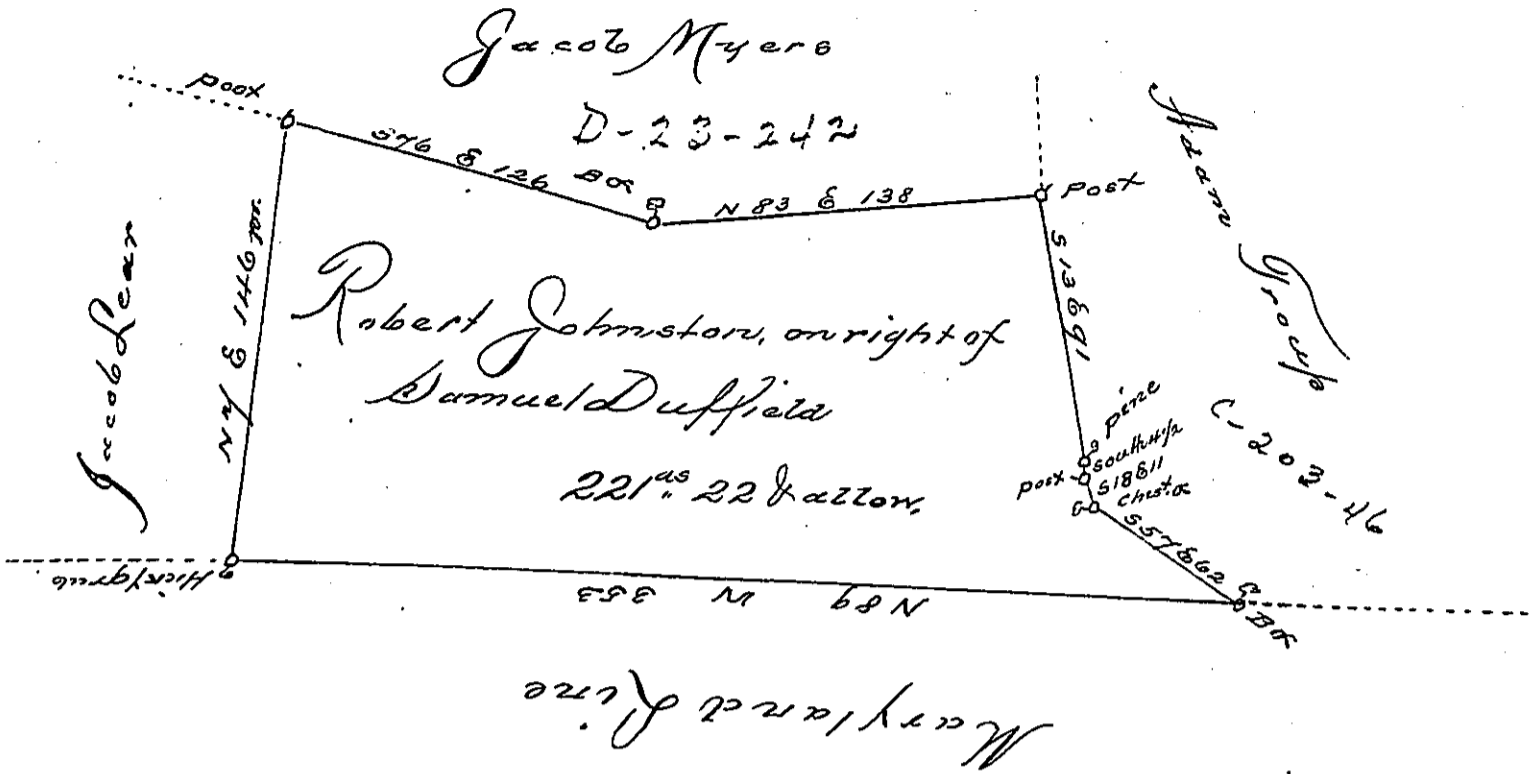 Jacob Myers
D-23-242
post
S 76 E 126
BO
N 83 E 138
post
Adam Troup
C-203-46
S 13 E 91
Jacob Lear
Robert Johnston, on right of
Samuel Duffield
221 as 22 & allow.
pine
South 4 1/2
post
S 18 E 11
Chest. o
S 57 E 62
BO
Hick'y grub
N 89 W 353
Maryland Line